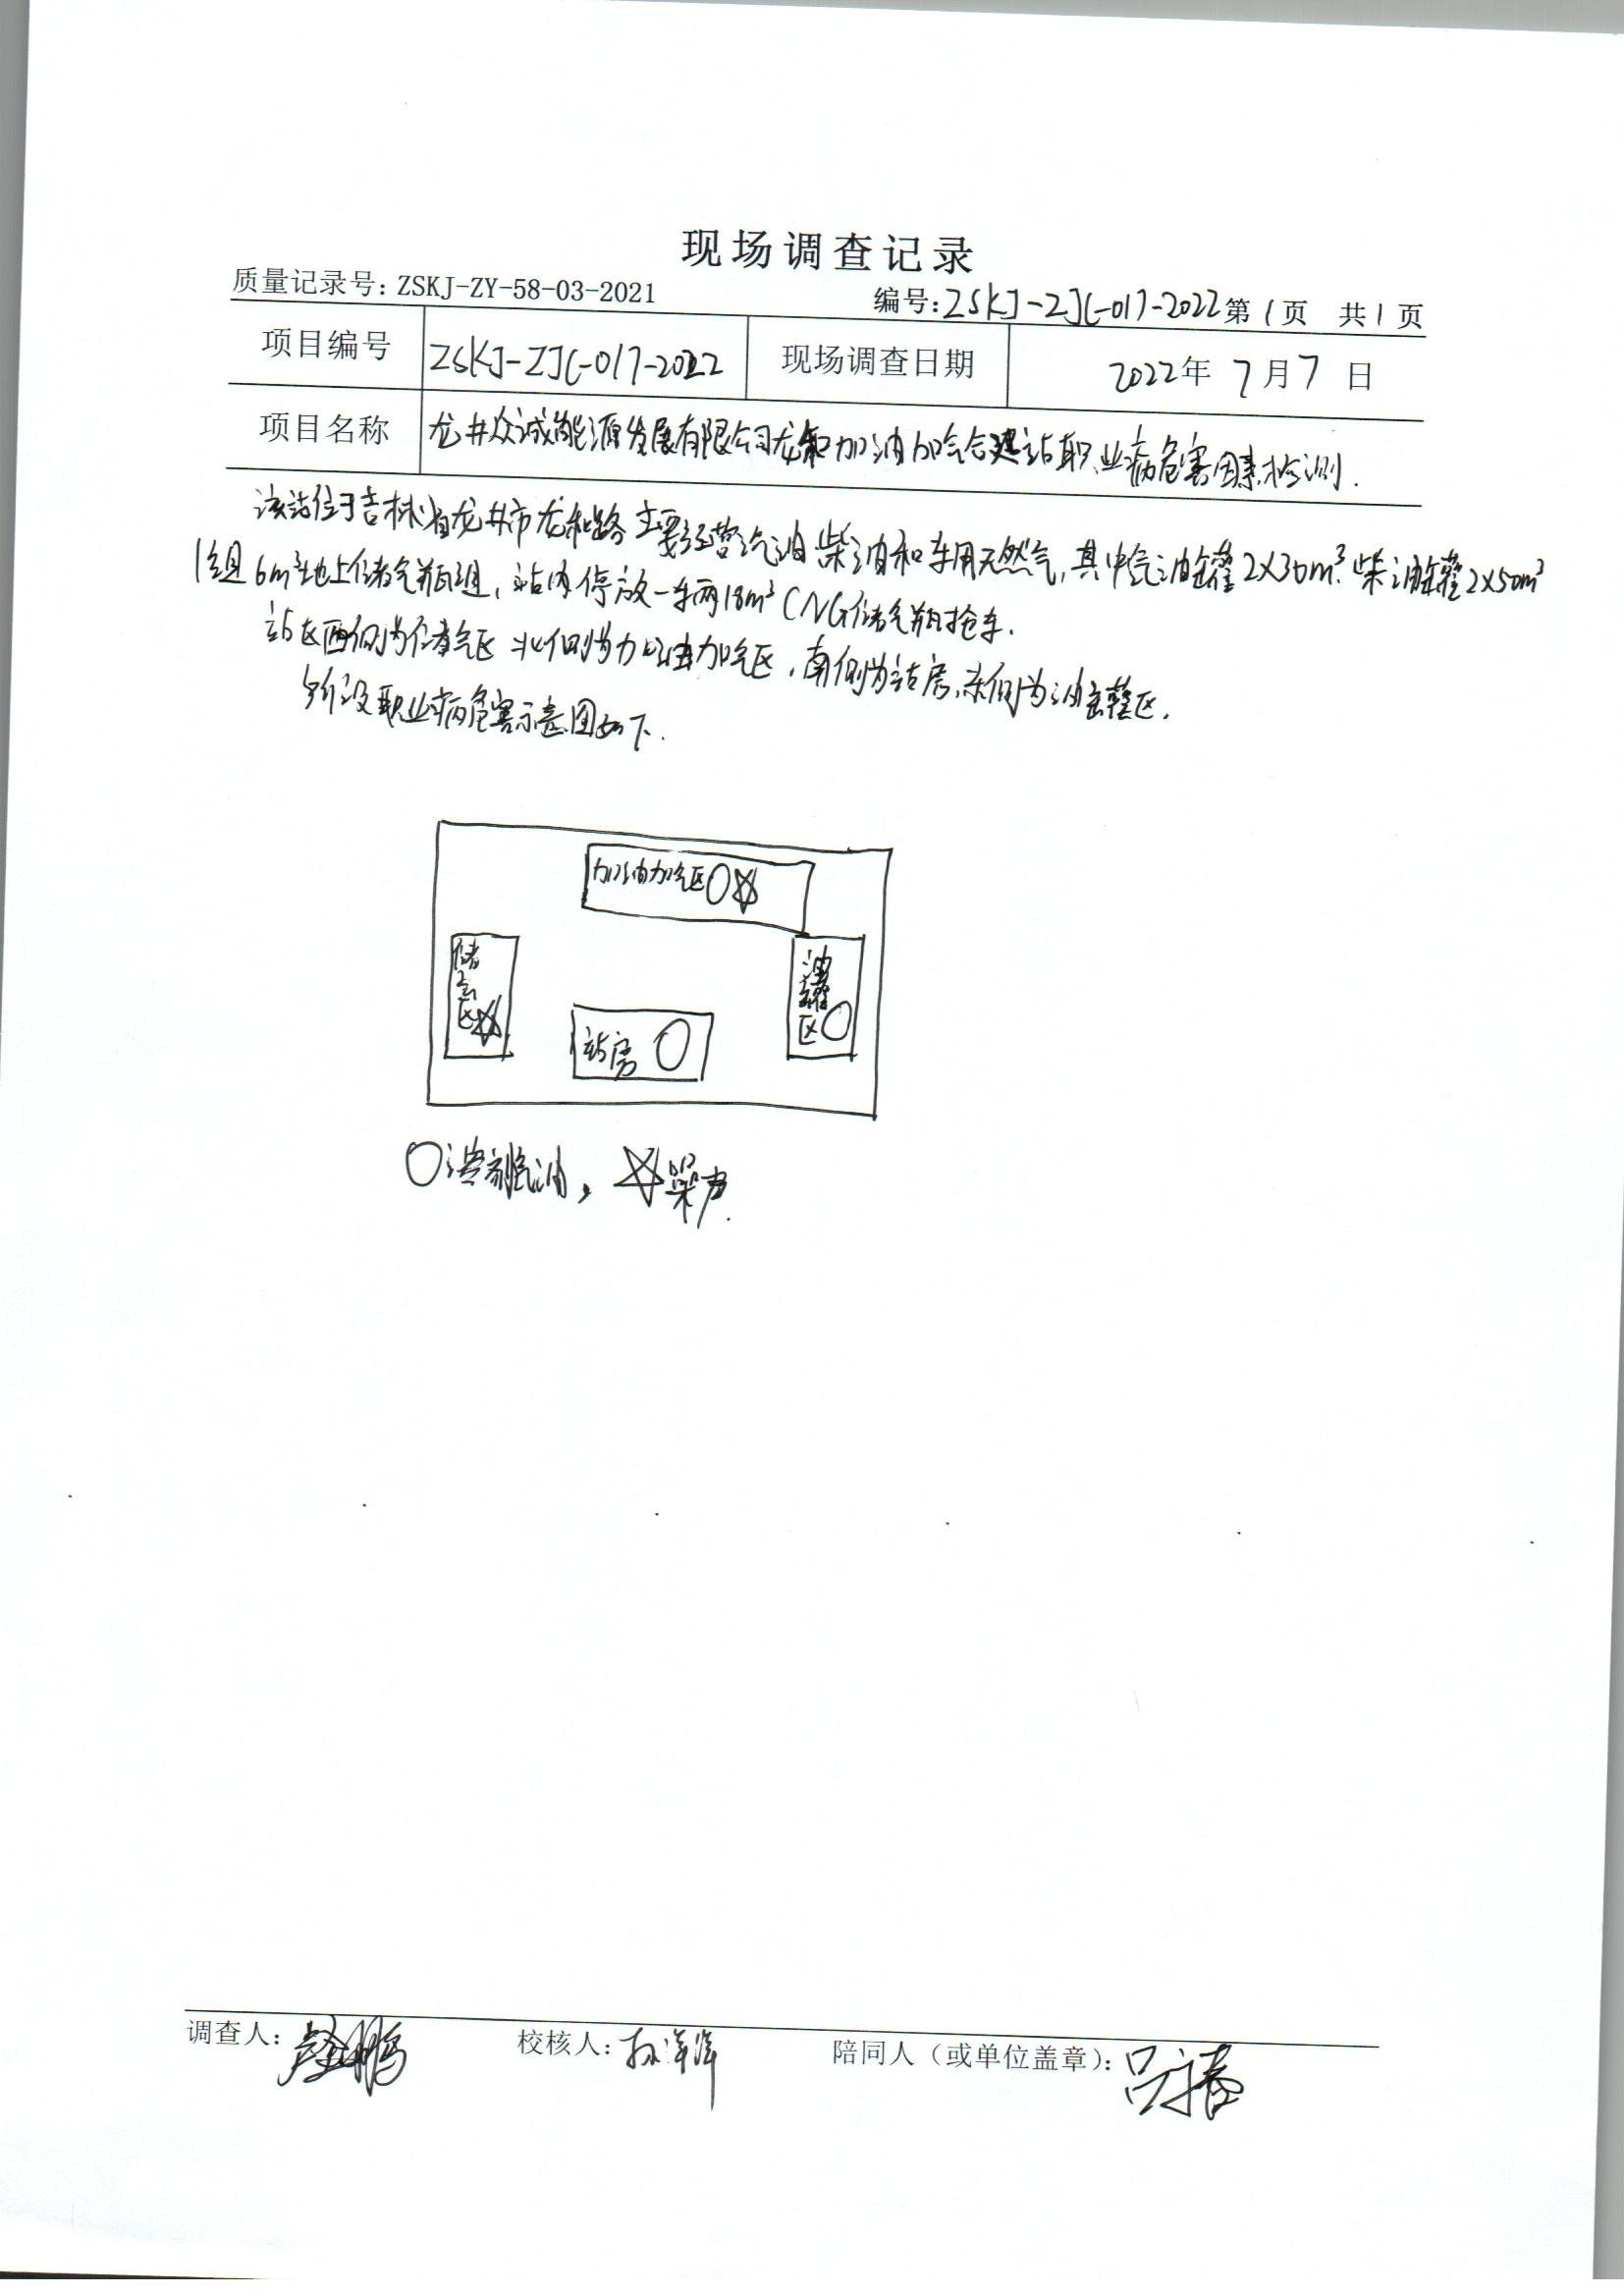 现场调查记录
质量记录号: ZSKJ-ZY-58-03-2021 编号: ZSKJ-ZJC-017-2022 第1页 共1页
项目编号 ZSKJ-ZJC-017-2022 现场调查日期 2022年7月7日
项目名称 龙井众诚能源发展有限公司龙和加油加气合建站职业病危害因素检测.
该站位于吉林省龙井市龙和路 主要经营汽油柴油和车用天然气,其中汽油罐2×30m³.柴油罐2×50m³
1组6m³地上储气瓶组,站内停放一车两18m³CNG储气瓶抢车.
站区西侧为储气区 北侧为加油加气区,南侧为站房,东侧为油罐区.
职业病危害示意图如下.
加油加气区
储气区
油罐区
站房
溶剂汽油, 噪声.
调查人: 校核人: 孙洋洋 陪同人(或单位盖章):